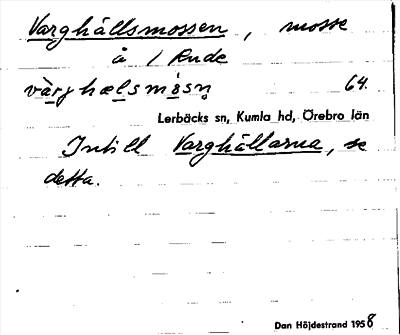 Varghällsmossen, mosse
å 1 Rude
vàrghælsmòsn̥ 64.
Lerbäcks sn, Kumla hd, Örebro län
Intill Varghällarna, se
detta.
Dan Höjdestrand 1958